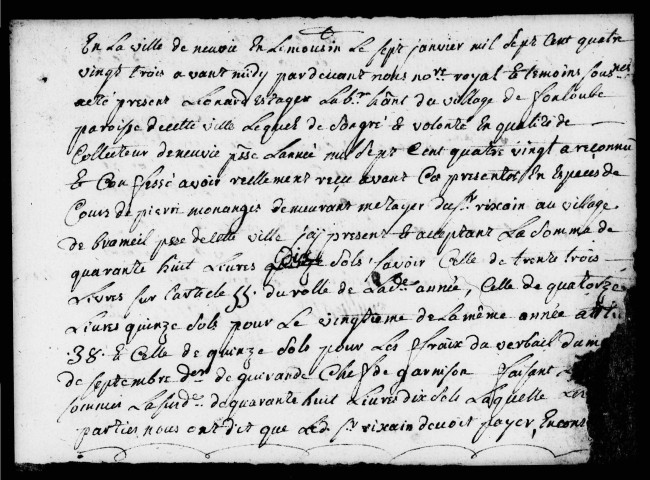 En la ville de neuvic en limousin le sept janvier mil sept cent quatre
vingt trois avant midy par devant nous nore royal et temoins sousnes
a eté present Leonard Estager labr hânt du village de fonloube
paroisse de cette ville lequel de son gré et volonté en qualité de
Collecteur de neuvic psse Lannée mil sept cent quatre vingt a reconnu
et Confessé avoir reellement reçu avant Ces presentes En especes de
Cours de pierre monanges demeurant metayer du sr rixain au village
de bromeil psse de cette ville icy present et acceptant La somme de
quarante huit livres dix sols savoir Celle de trente trois
Livres sur larticle 55. du rolle de La de année, Celle de quatorze
Livres quinze sols pour Le vingtieme de la même année
.38. et Celle de quinze sols pour Les fraix du verbail du
de septembre der de guirande Chef de garnison faisant
sommes La susde de quarante huit Livres dix sols Laquelle
parties nous ont dit que Led. sr rixain devoit payer,